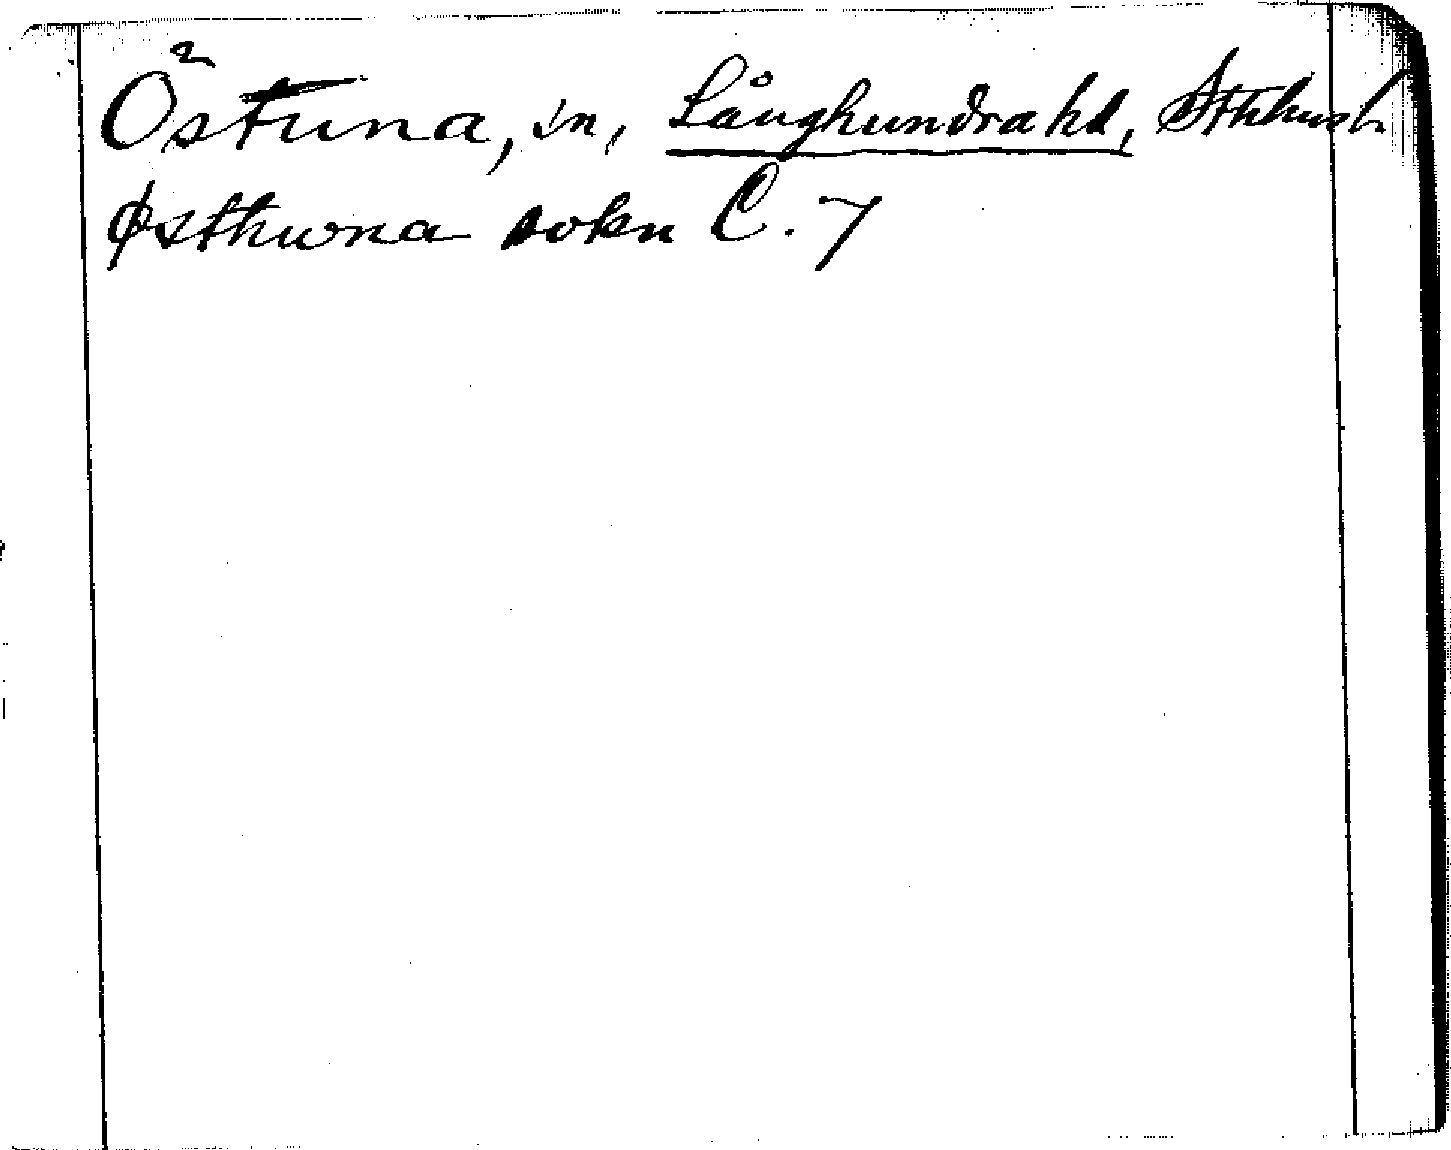 Östuna, sn, Långhundra hd, Sthlms l.
Østhuna sokn C. 7